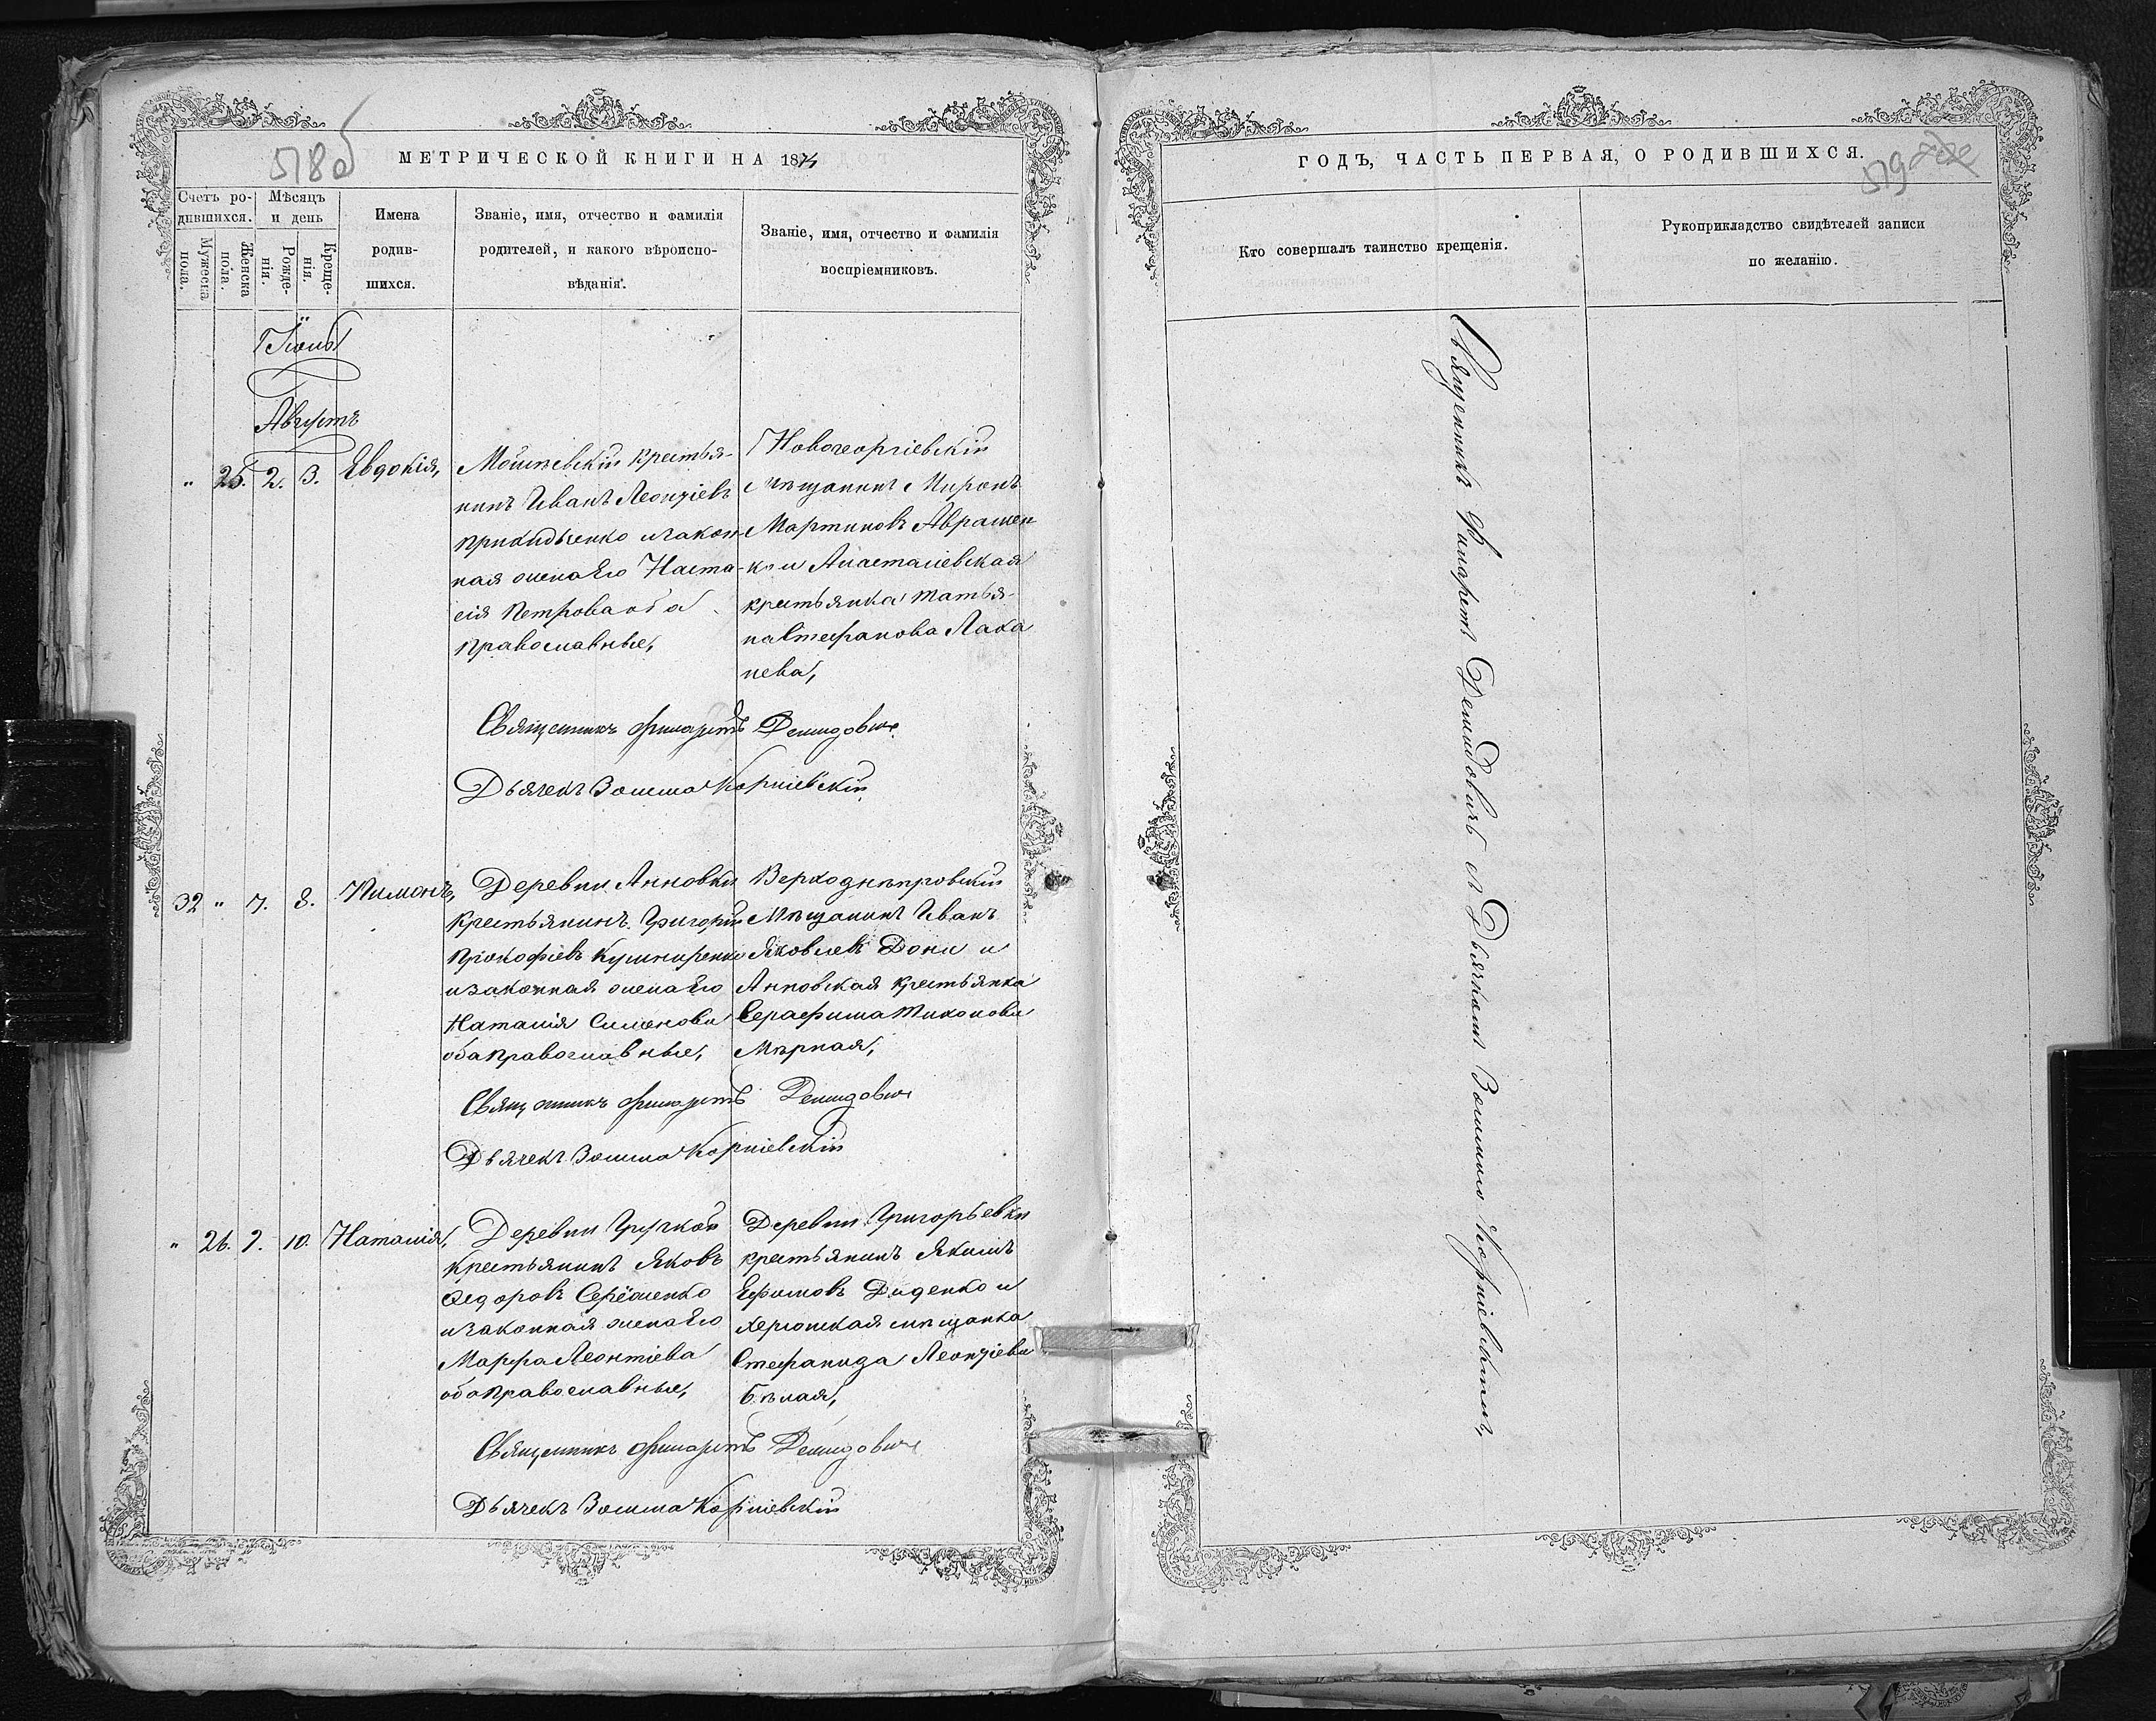 518об
МЕТРИЧЕСКОЙ КНИГИ НА 1874
Счетъ ро-
дившихся.
Мѣсяцъ
и день
Мужеска
пола.
Женска
пола.
Рожде-
нія.
Креще-
нія.
Имена
родив-
шихся.
Званіе, имя, отчество и фамилія
родителей, и какого вѣроиспо-
вѣданія.
Званіе, имя, отчество и фамилія
воспріемниковъ.
Августъ
" 25. 2. 3. Евдокія,
крестья-
нинъ Иванъ Леонтіевъ
и закон-
ная жена его Наста-
сія Петрова оба
православные,
Новогеоргіевскій
мѣщанинъ Миронъ
Мартиновъ Аврамен
ко и Анастасіевская
крестьянка Татья-
на Стефанова Лаха
нева,
Священникъ Филаретъ Демидовичъ
Дьячекъ Зосима Корніевскій
32 " 7. 8. Пименъ,
Деревни Анновки
крестьянинъ Григорій
Прокофіевъ Кушниренко
и законная жена его
Наталія Сименова
оба православные,
Верходнѣпровскій
мѣщанинъ Иванъ
Яковлевъ и
Анновская крестьянка
Серафима Тихонова
Мѣрная,
Священникъ Филаретъ Демидовичъ
Дьячекъ Зосима Корніевскій
" 26. 9. 10. Наталія,
Деревни
крестьянинъ Яковъ
Федоровъ
и законная жена его
Марфа Леонтіева
оба православные,
Деревни Григорьевки
крестьянинъ Якимъ
Ефимовъ Диденко и
херсонская мѣщанка
Стефанида Леонтіева
Бѣлая,
Священникъ Филаретъ Демидовичъ
Дьячекъ Зосима Корніевскій
ГОДЪ, ЧАСТЬ ПЕРВАЯ, О РОДИВШИХСЯ.
519
Кто совершалъ таинство крещенія.
Рукоприкладство свидѣтелей записи
по желанію.
Священникъ Филаретъ Демидовичъ и Дьячкомъ Зосимою Корніевскимъ,